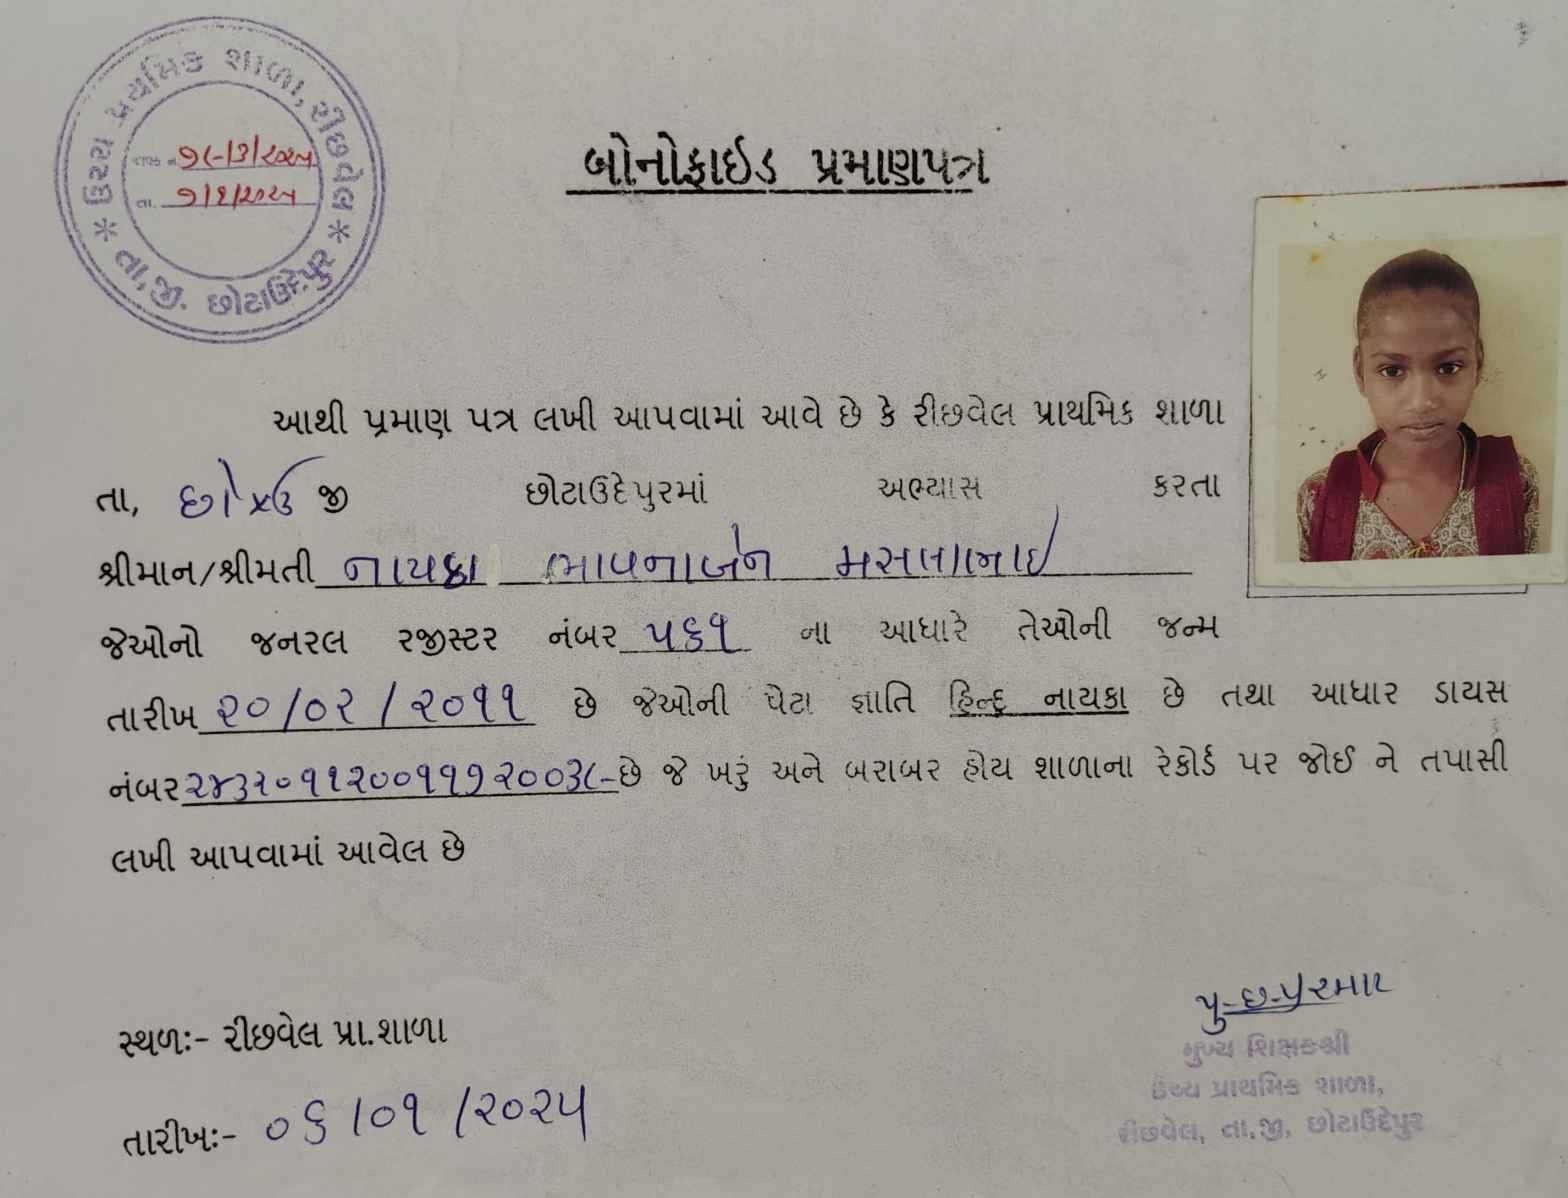 ઉચ્ચ પ્રાથમિક શાળા, રીછવેલ
* તા,જી. છોટાઉદેપુર *
તા.
બોનોફાઈડ પ્રમાણપત્ર
આથી પ્રમાણ પત્ર લખી આપવામાં આવે છે કે રીછવેલ પ્રાથમિક શાળા
તા, જી છોટાઉદેપુરમાં અભ્યાસ કરતા
શ્રીમાન/શ્રીમતી નાયકા ભાવનાબેન
જેઓનો જનરલ રજીસ્ટર નંબર ૫૬૧ ના આધારે તેઓની જન્મ
તારીખ ૨૦/૦૨/૨૦૧૧ છે જેઓની પેટા જ્ઞાતિ હિન્દુ નાયકા છે તથા આધાર ડાયસ
નંબર છે જે ખરું અને બરાબર હોય શાળાના રેકોર્ડ પર જોઈ ને તપાસી
લખી આપવામાં આવેલ છે
સ્થળઃ- રીછવેલ પ્રા.શાળા
તારીખઃ- ૦૬/૦૧/૨૦૨૫
મુખ્ય શિક્ષકશ્રી
ઉચ્ચ પ્રાથમિક શાળા,
રીછવેલ, તા.જી, છોટાઉદેપુર